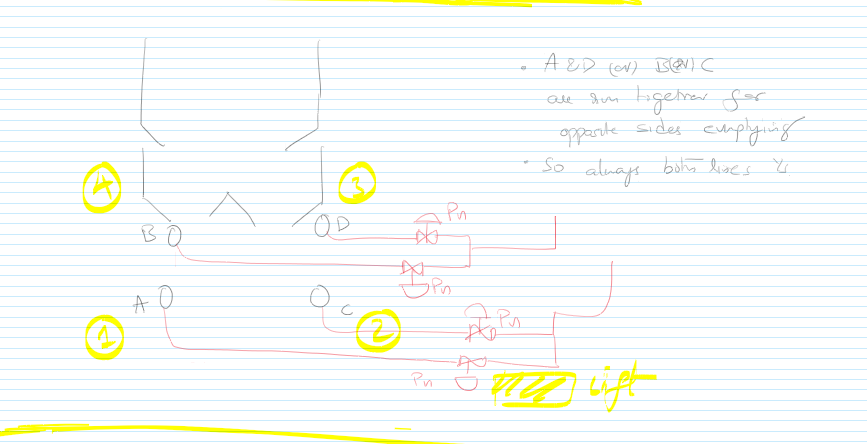 • A & D (or) B (or) C
are run together for
opposite sides emptying
• So always both lines
4
3
B
D
Pn
Pn
A
C
1
2
Pn
Pn
Lift